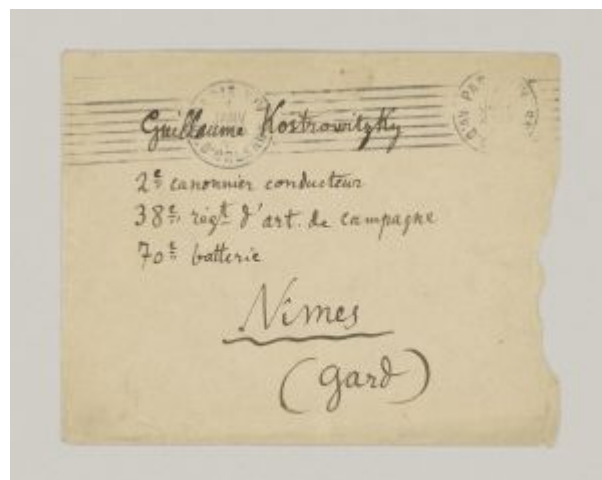 JANV
D'ORLEANS
AV
Guillaume Kostrowitzky
2e canonnier conducteur
38e régt d'art. de campagne
70e batterie
Nîmes
(Gard)